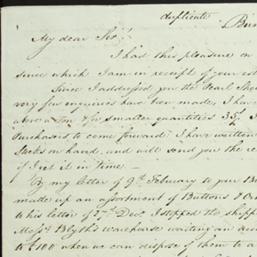 duplicate
My dear Sir
I had this pleasure on
since which I am in receipt of your
Since I addressed you the Pearl
very few enquiries have been made, I have
a Ton for smaller quantities 35/
Purchasers to come forward. I have written
on hand, and will send you the re
if I get it in time —
By my letter of 9th February to you
made up an assortment of Buttons &
to his letter of 27th Decr I stopped the shipp
Messrs Blyth's warehouse waiting an
to £100 when we can dispose of them to a